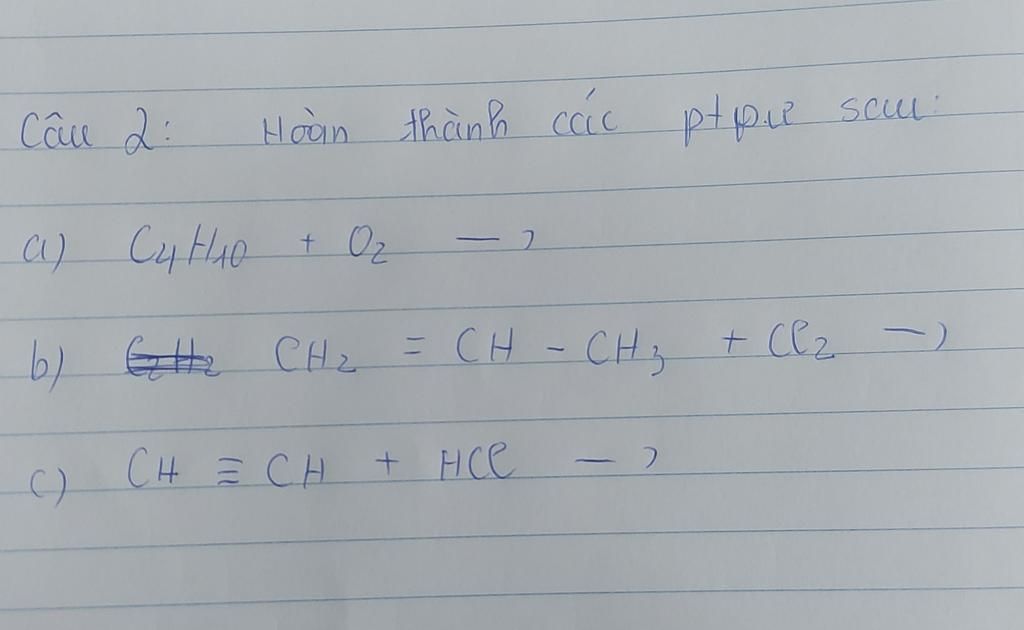 Câu 2: Hoàn thành các ptpư sau:
a) C4H10 + O2 →
b) CH2 = CH - CH3 + Cl2 →
c) CH ≡ CH + HCl →